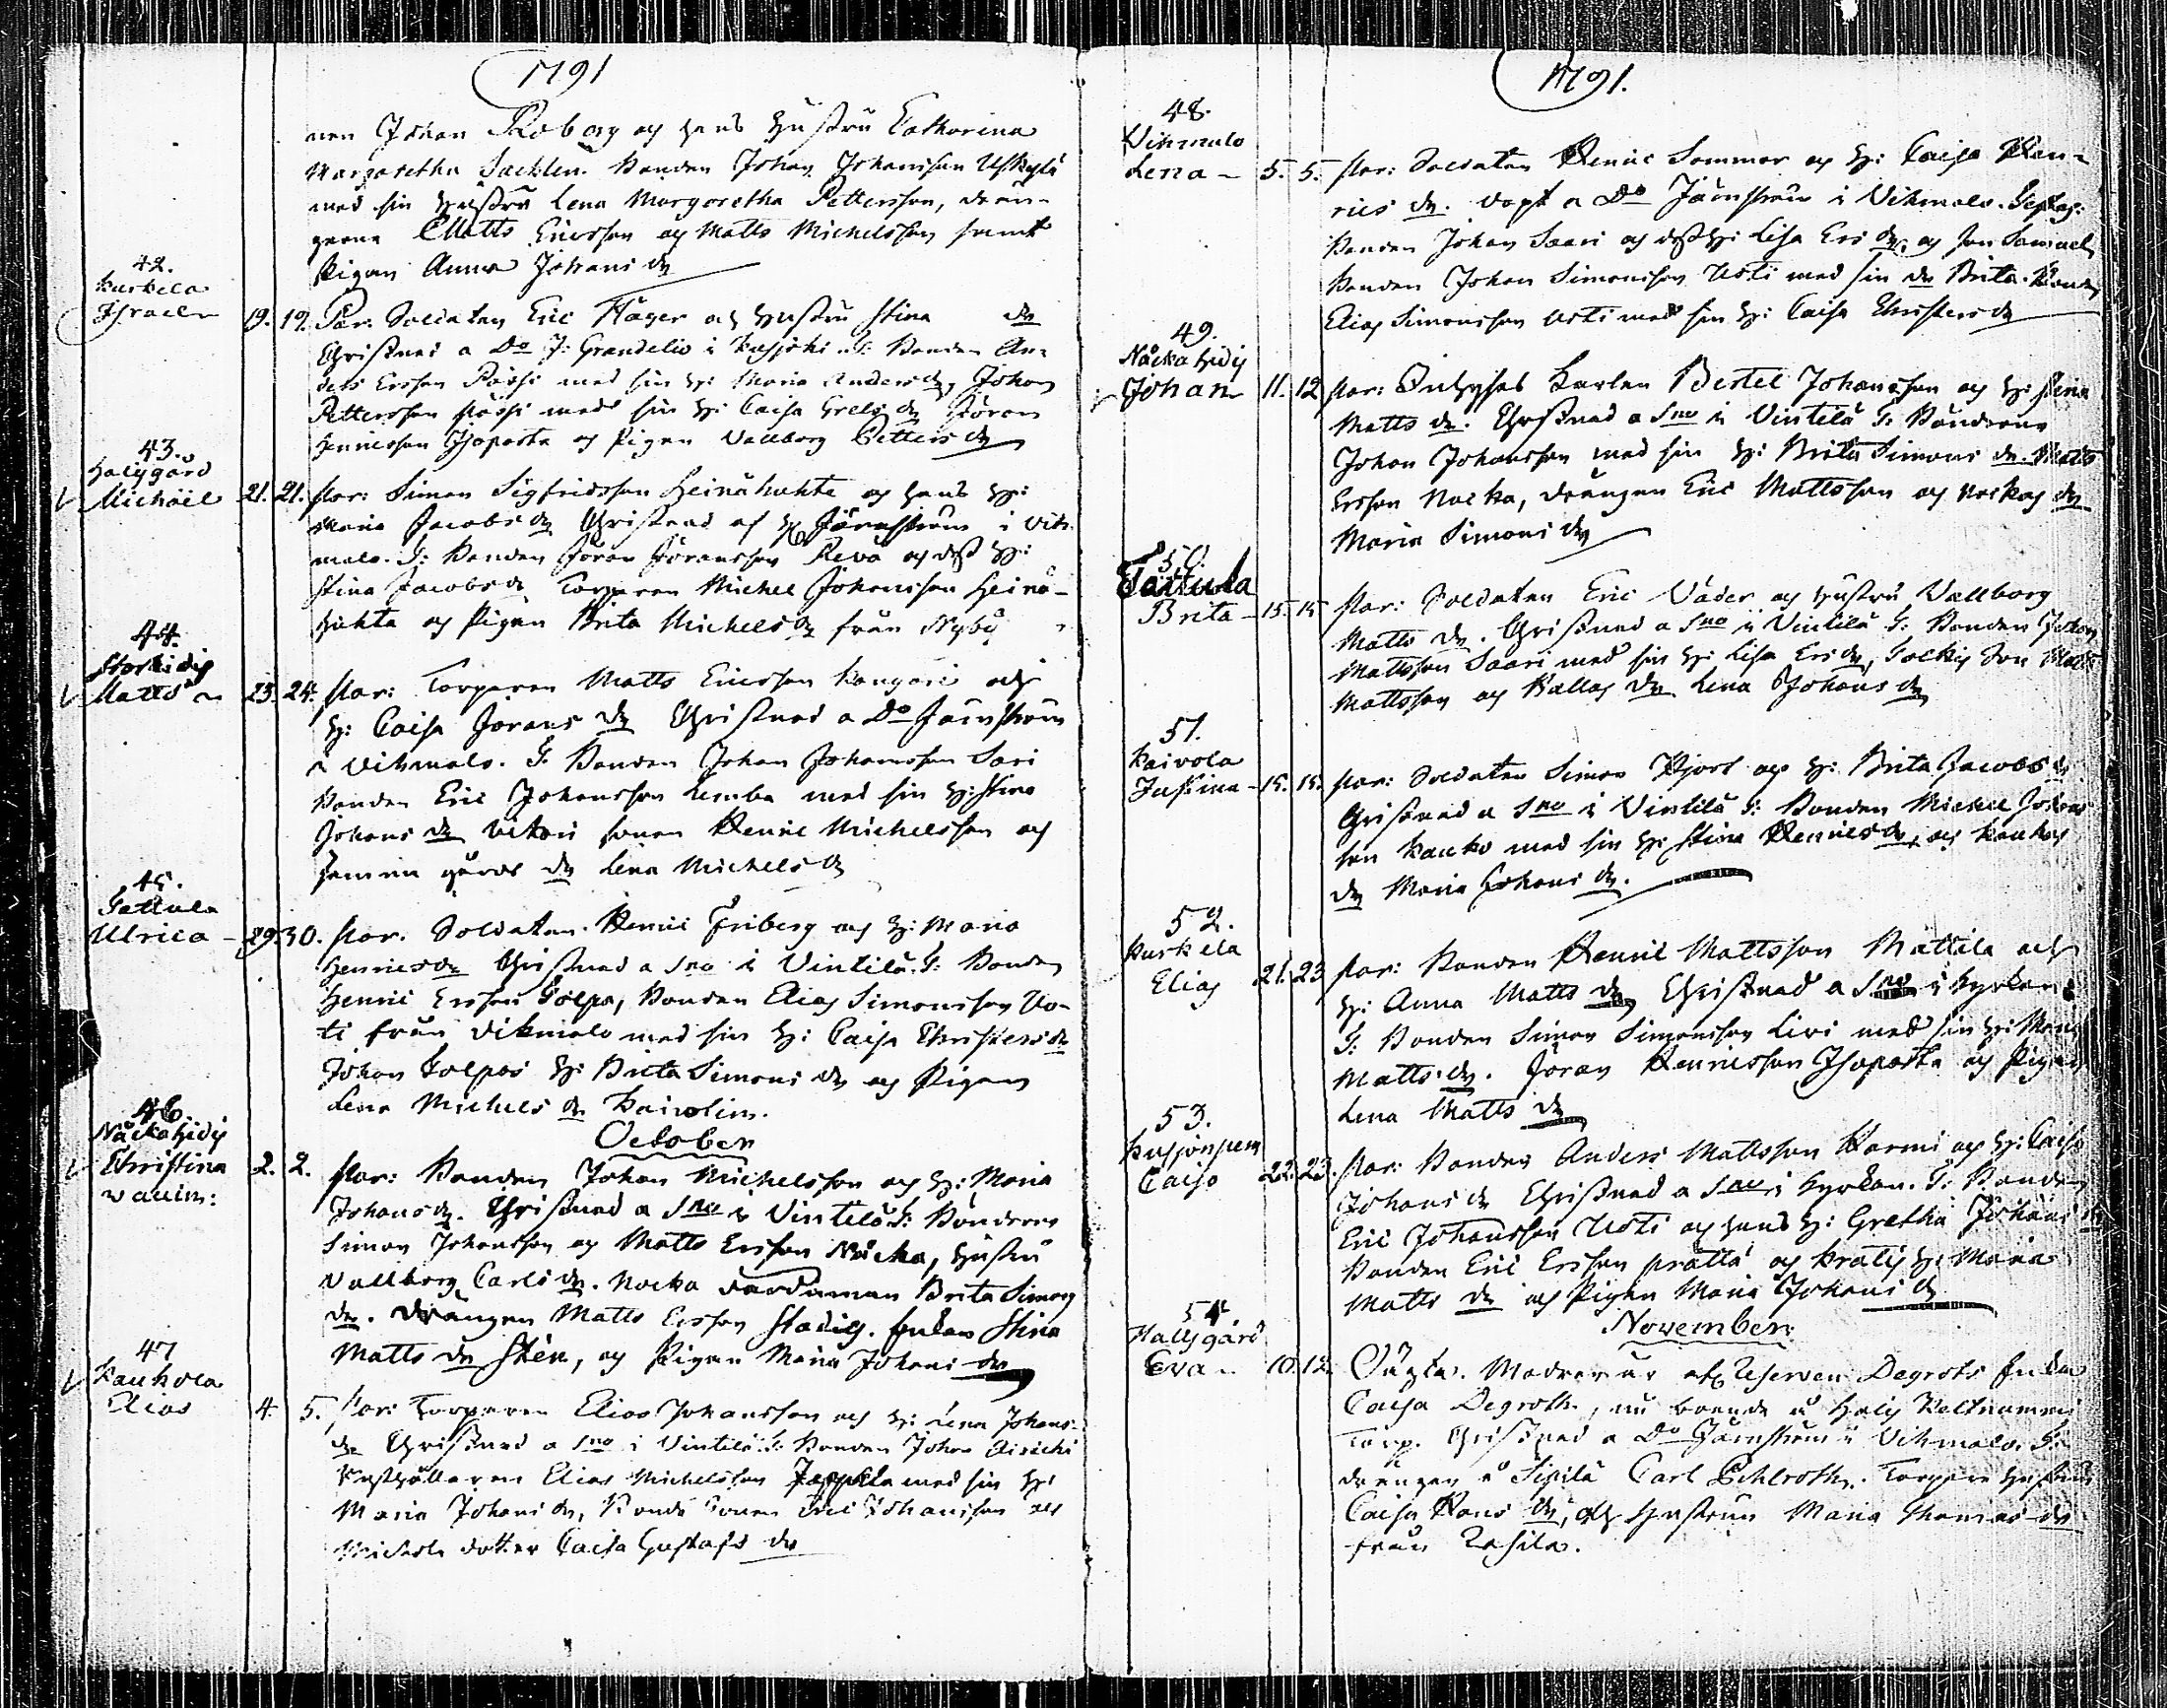 1791
nen Johan Roberg och hans Hustru Catharina
Margaretha Sacklen. Bonden Johan Johansson Uskylä
med sin Hustru Lena Margaretha Pettersson, drän-
garne Matts Ericsson och Matts Michelsson samt
Pigan Anna Johans dr
42.
Kurkela
Israel
19. 19. Par: Soldaten Eric Häger och Hustru Stina dr
Christnad a Do J: Grandelio i Kusjoki. T: Bonden An-
ders Ersson Pässi med sin H: Maria Anders dr, Johan
Pettersson Pässi med sin H: Caisa Grels dr Jöran
Henricsson Isoparta och Pigan Vallborg Petters dr
43.
Halsgård
Michael
21. 21. Par: Simon Sigfridsson Heinähuhta och hans H:
Maria Jacobs dr Christnad af H Järnström i Vih-
malo. T: Bonden Jöran Jöransson Reva och dess H:
Stina Jacobs dr Torparen Michel Johansson Heinä-
huhta och Pigan Brita Michels dr från Nyby
44.
Storhidis
Matts
23. 24. Par: Torparen Matts Ericsson Kangari och
H: Caisa Jörans dr Christnad a Do Järnström
i Vihmalo. T. Bonden Johan Johansson Sari
Bonden Eric Johansson Lemba med sin H: Stina
Johans dr Uckari sonen Henric Michelsson och
Hemmi gårds dr Lena Michels dr
45.
Tattula
Ulrica
29. 30. Par. Soldaten Henric Friberg och H: Maria
Henrics dr Christnad a Sno i Vintilä. T: Bonden
Henric Ersson Tolpo, Bonden Elias Simonsson Us-
ti från Vihmalo med sin H: Caisa Christers dr
Johan Tolpos H: Brita Simons dr och Pigan
Lena Michels dr Kaivolin.
October
46
Näckahidis
Christina
2. 2. Par: Bonden Johan Michelsson och H: Maria
Johans dr. Christnad a Sno i Vintilä T: Bönderne
Simon Johansson och Matts Ersson Näcka, Hustru
Vallborg Carls dr. Nocka Brita Simons
dr. Drängen Matts Ersson Stadig. Enkan Stina
Matts dr Stén, och Pigan Maria Johans dr
47
Kauhola
Elias
4. 5. Par: Torparen Elias Johansson och H: Lena Johans
dr Christnad a Sno i Vintilä T: Bonden Johan Airichi
Rusthållaren Elias Michelsson Jappila med sin H:
Maria Johans dr, Bonde Sonen Eric Johansson och
dotter Caisa Gustafs dr
1791.
48.
Vihmalo
Lena
5. 5. Par: Soldaten Henric Sommar och H: Caisa Hen-
rics dr. Döpt a Do Järnström i Vihmalo. Test:
Bonden Johan Saari och dess H: Lisa Ers dr och son Samuel
Bonden Johan Simonsson Usti med sin dr Brita. Bonden
Elias Simonsson Usti med sin H: Caisa Christers dr
49.
Näckahidis
Johan
11. 12 Par: Inhyses Karlen Bertel Johansson och H: Stina
Matts dr. Christnad a Sno i Vintilä T: Bönderne
Johan Johansson med sin H: Brita Simons dr. Matts
Ersson Nocka, Drängen Eric Mattsson och Nockas dr
Maria Simons dr
50.
Tattula
Brita
15. 15 Par: Soldaten Eric Väder och Hustru Vallborg
Matts dr. Christnad a Sno i Vintilä T: Bonden Johan
Mattsson Saari med sin H: Lisa Ers dr, Tolkis Son Matts
Mattsson och Kallas dr Lena Johans dr
51.
Kaivola
Justina
15. 15. Par: Soldaten Simon Hjort och H: Brita Jacobs dr
Christnad a Sno i Vintilä T: Bonden Michel Johans
son Kauko med sin H: Stina Henrics dr, och Kaukos
dr Maria Johans dr.
52.
Kurkela
Elias
21. 23 Par: Bonden Henric Mattsson Mattila och
H: Anna Matts dr Christnad a Sno i Kyrkan
T: Bonden Simon Simonsson Livi med sin H: Maria
Matts dr. Jöran Henricsson Isoparta och Pigan
Lena Matts dr
53.
Caisa
22. 23. Par: Bonden Anders Mattsson Harmi och H: Caisa
Johans dr Christnad a Sno i Kyrkan. T: Bonden
Eric Johansson Usti och hans H: Gretha Johans dr
Bonden Eric Ersson Prättä och Kratis H: Maria
Matts dr och Pigan Maria Johans dr
November
54
Halsgård
Eva
10. 12. Oägta. Modren är af Reserven Degrots Enka
Caisa Degroth, nu boende å Halis
Torp. Christnad a Do Järnström i Vihmalo. T:
drängen å Sipilä Carl Echlroth. Torpare Hustrun
Caisa Hans dr, och Hustrun Maria Thomas dr
från Rasila.